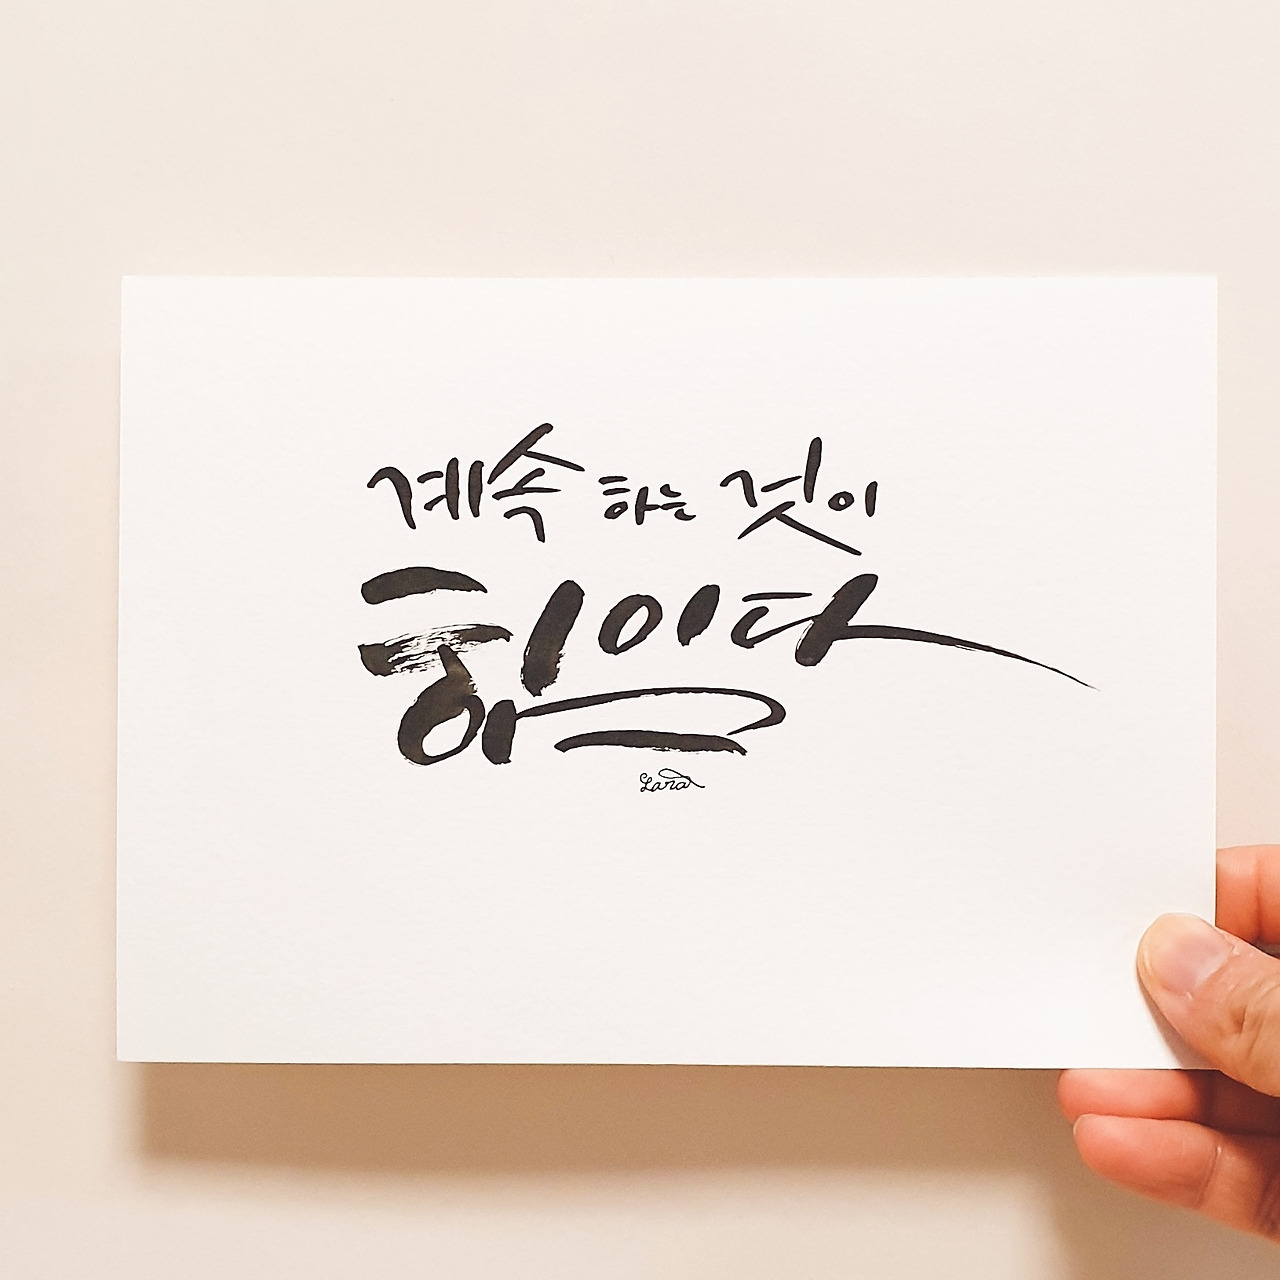 계속 하는 것이
힘이다
Lara